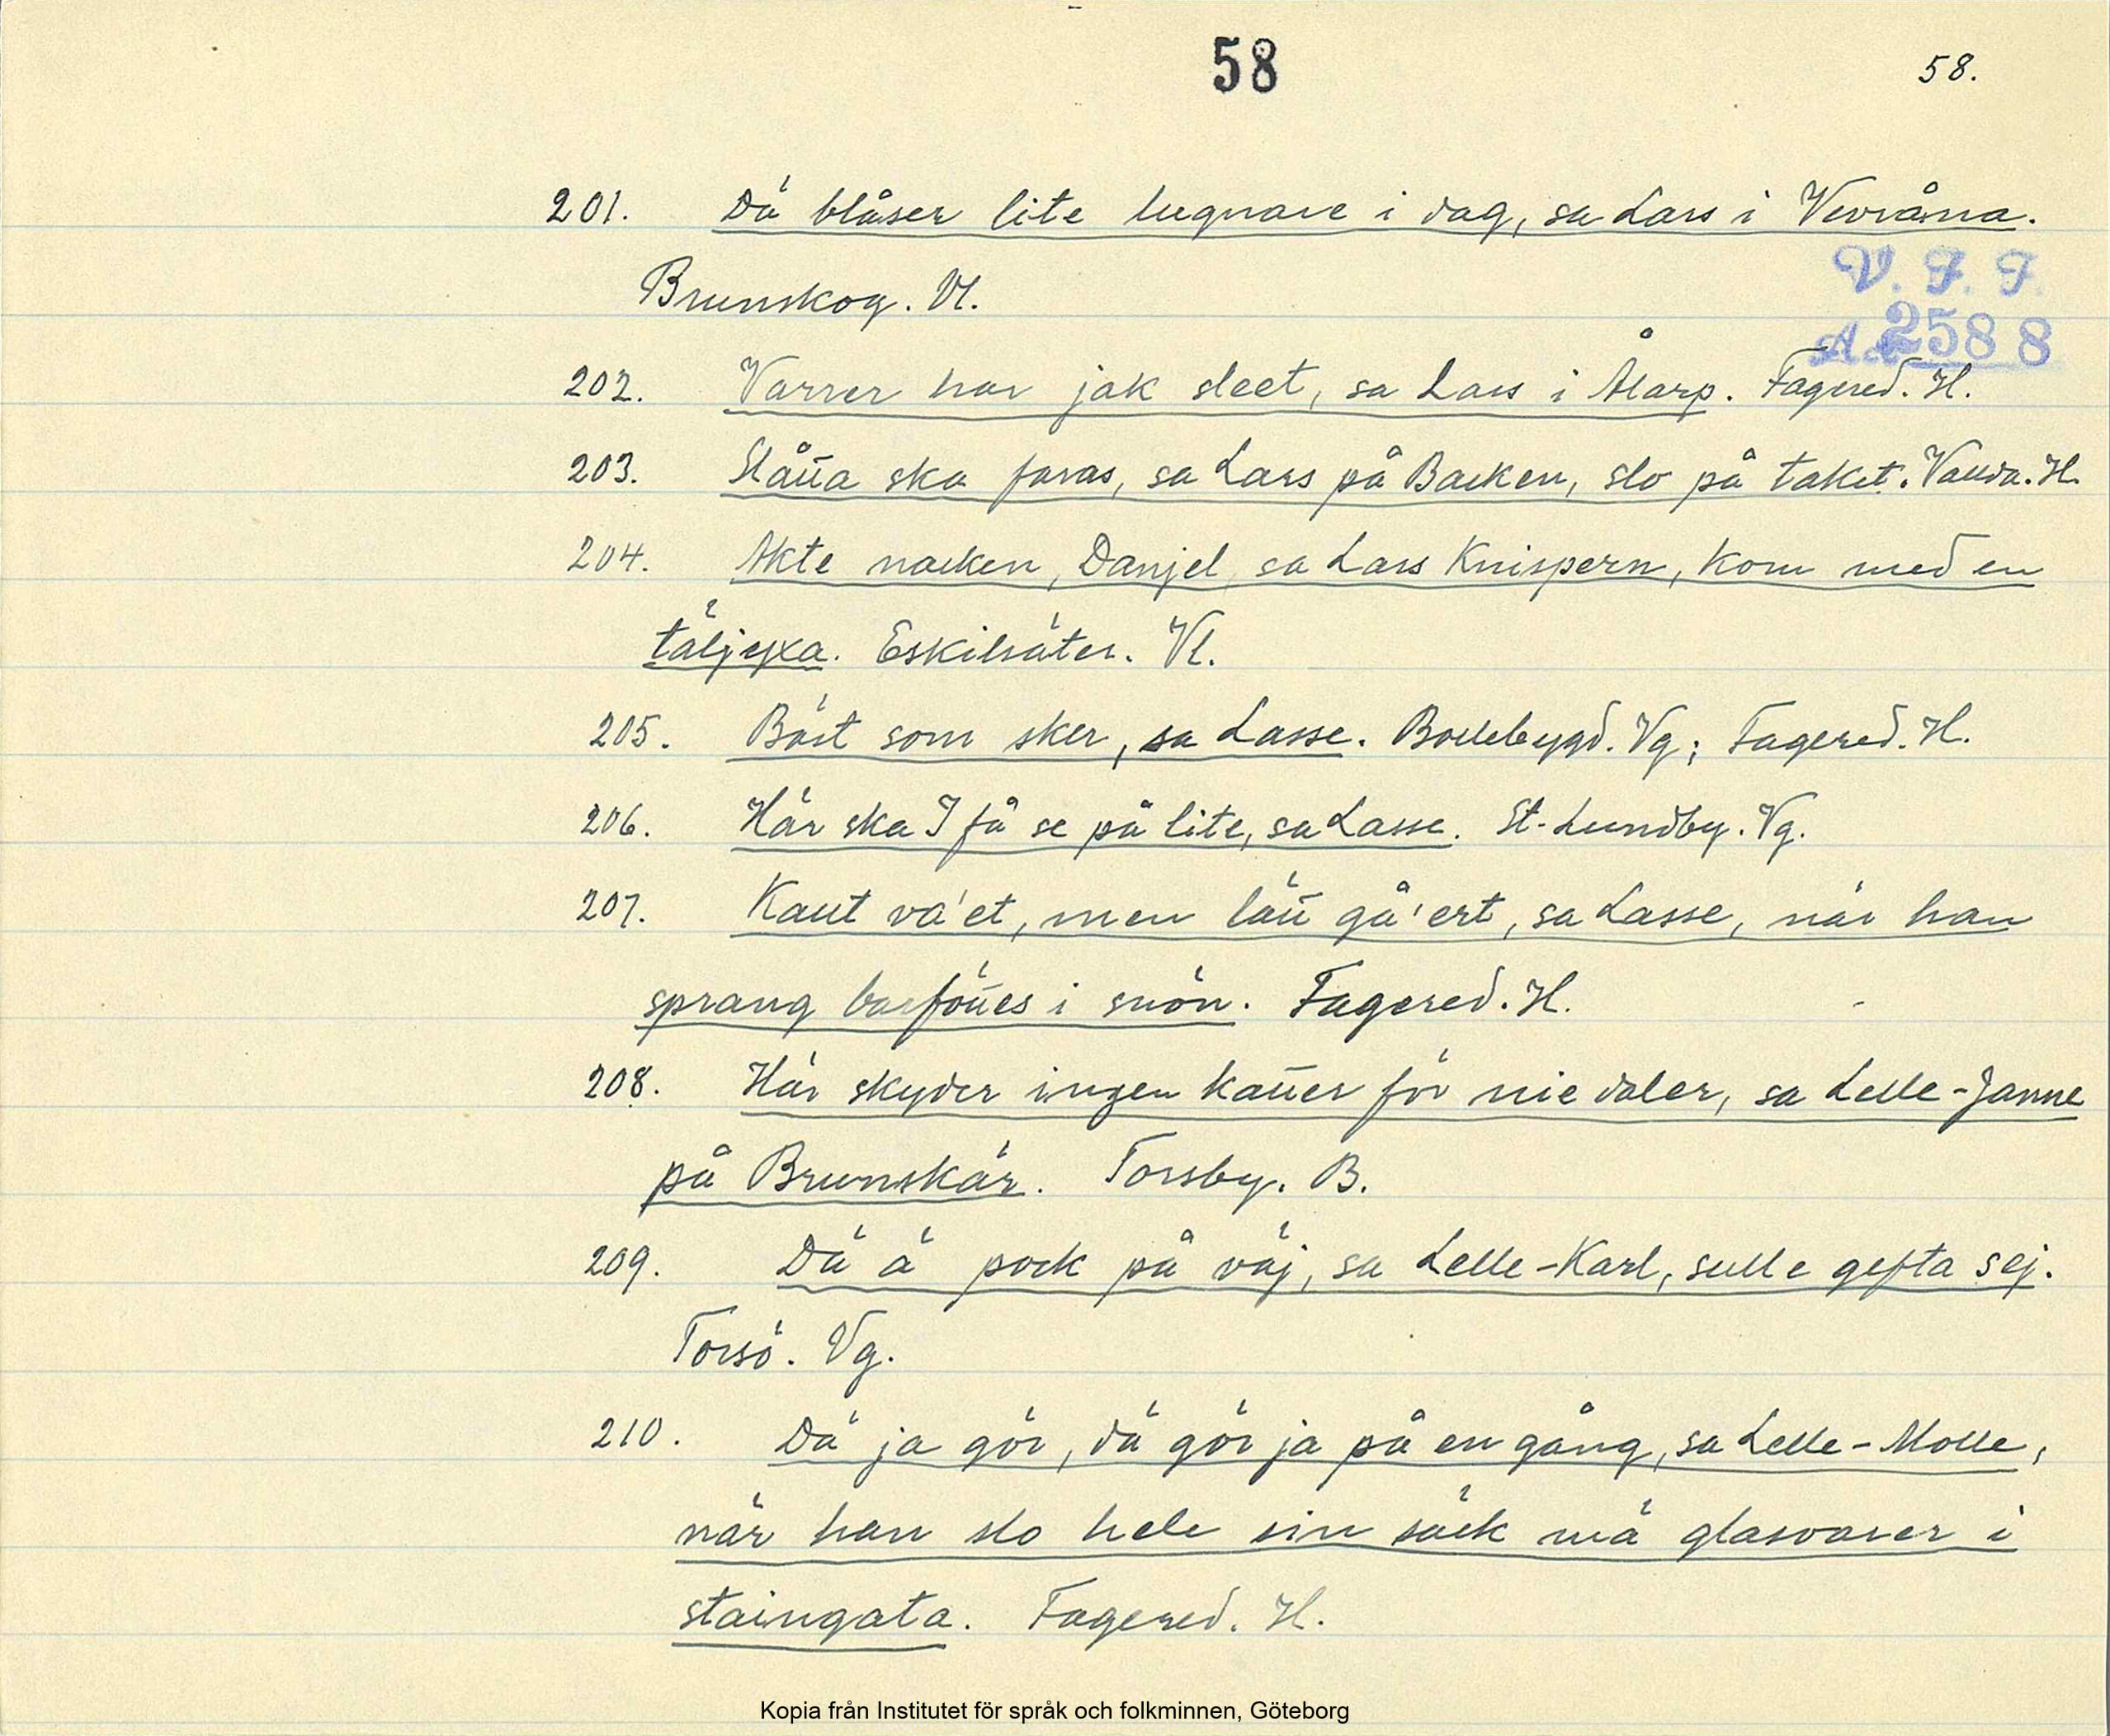 58
58.
201. Dä blåser lite lugnare i dag, sa Lars i Vevråna.
V. F. F.
Brunskog. Vl.
Acc 2588
202. Varrer har jak sleet, sa Lars i Ålarp. Fagered. H.
203. Slåūa ska faras, sa Lars på Backen, slo på taket. Valda. H.
204. Akte nacken, Danjel, sa Lars Knispern, kom med en
täljyxa. Eskilsäter. Vl.
205. Bäst som sker, sa Lasse. Bollebygd. Vg; Fagered. H.
206. Här ska I få se på lite, sa Lasse. St. Lundby. Vg.
207. Kaut va'et, men läū gå'ert, sa Lasse, när han
sprang barföūes i snön. Fagered. H.
208. Här skyder ingen kaūer för nie daler, sa Lelle-Janne
på Brunskär. Torsby. B.
209. Dä ä pock på väj, sa Lelle-Karl, sulle gefta sej.
Torsö. Vg.
210. Dä ja gör, dä gör ja på en gång, sa Lelle-Molle,
när han slo hele sin säck mä glasvarer i
staingata. Fagered. H.
Kopia från Institutet för språk och folkminnen, Göteborg